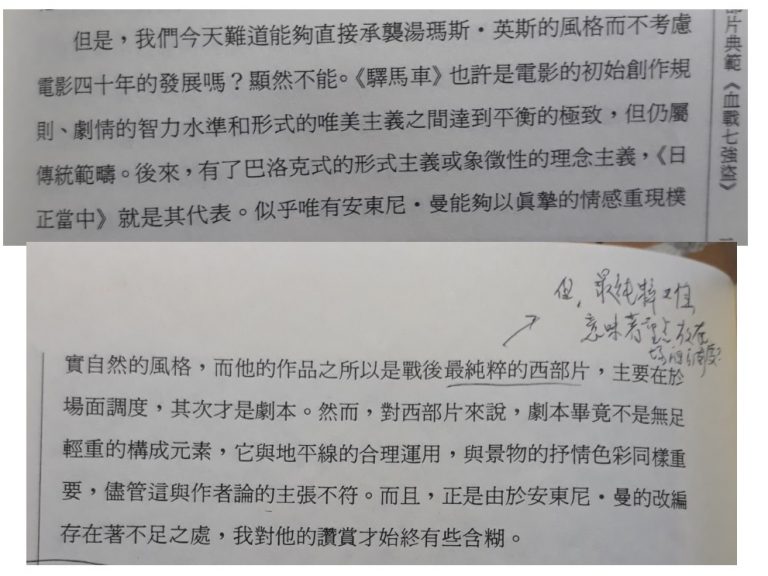 但是，我們今天難道能夠直接承襲湯瑪斯・英斯的風格而不考慮
電影四十年的發展嗎？顯然不能。《驛馬車》也許是電影的初始創作規
則、劇情的智力水準和形式的唯美主義之間達到平衡的極致，但仍屬
傳統範疇。後來，有了巴洛克式的形式主義或象徵性的理念主義，《日
正當中》就是其代表。似乎唯有安東尼・曼能夠以眞摯的情感重現樸
部片典範《血戰七強盜》
但，最純粹
意味著重點放在
實自然的風格，而他的作品之所以是戰後最純粹的西部片，主要在於
場面調度，其次才是劇本。然而，對西部片來說，劇本畢竟不是無足
輕重的構成元素，它與地平線的合理運用，與景物的抒情色彩同樣重
要，儘管這與作者論的主張不符。而且，正是由於安東尼・曼的改編
存在著不足之處，我對他的讚賞才始終有些含糊。